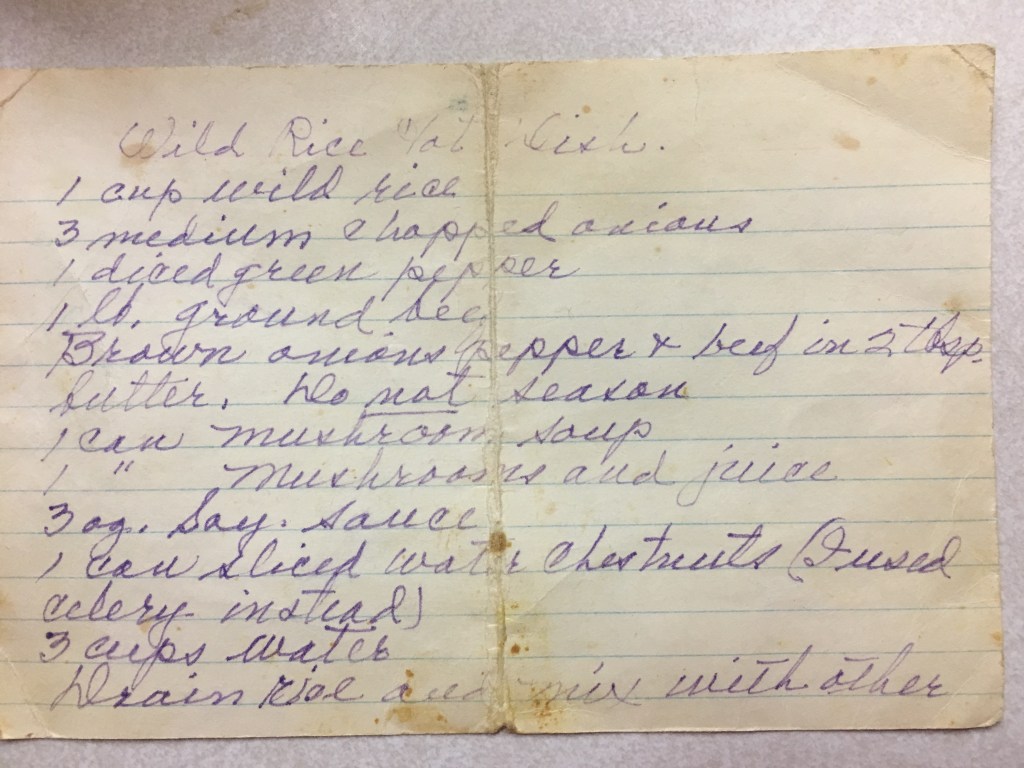 Wild Rice Hot Dish.
1 cup wild rice
3 medium chopped onions
1 diced green pepper
1 lb. ground beef
Brown onions, pepper & beef in 2 tbsp.
butter. Do not season
1 can mushroom soup
1 " mushrooms and juice
3 oz. Soy. sauce
1 can sliced water chestnuts (I used
celery instead)
3 cups water
Drain rice and mix with other